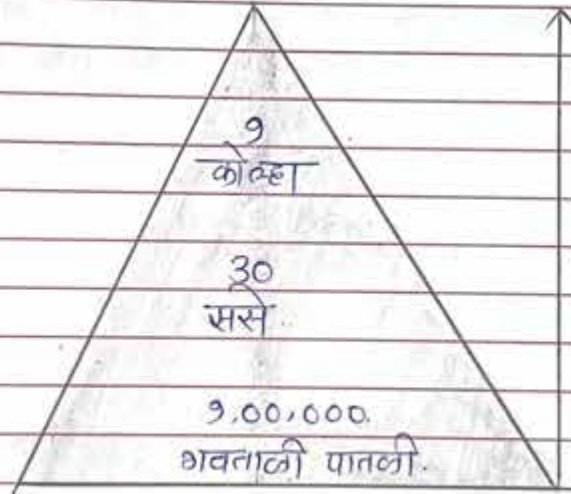 १
कोल्हा
३०
ससे
१,००,०००.
गवताची पातळी.